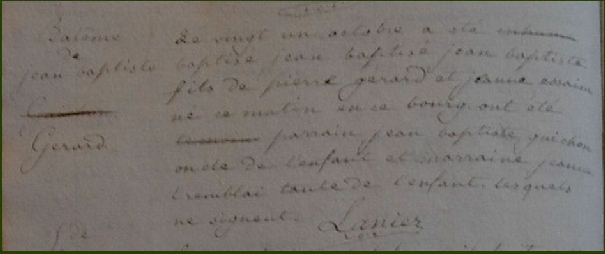 Batême
de
jean baptiste
Gerard
Le vingt un octobre a été inhumé
baptisé jean baptisé jean baptiste
fils de pierre gerard et jeanne
ne ce matin en ce bourg ont été
parrain jean baptiste guichon
oncle de l'enfant et marraine jeanne
tremblai tante de l'enfant lesquels
ne signent. Lanier